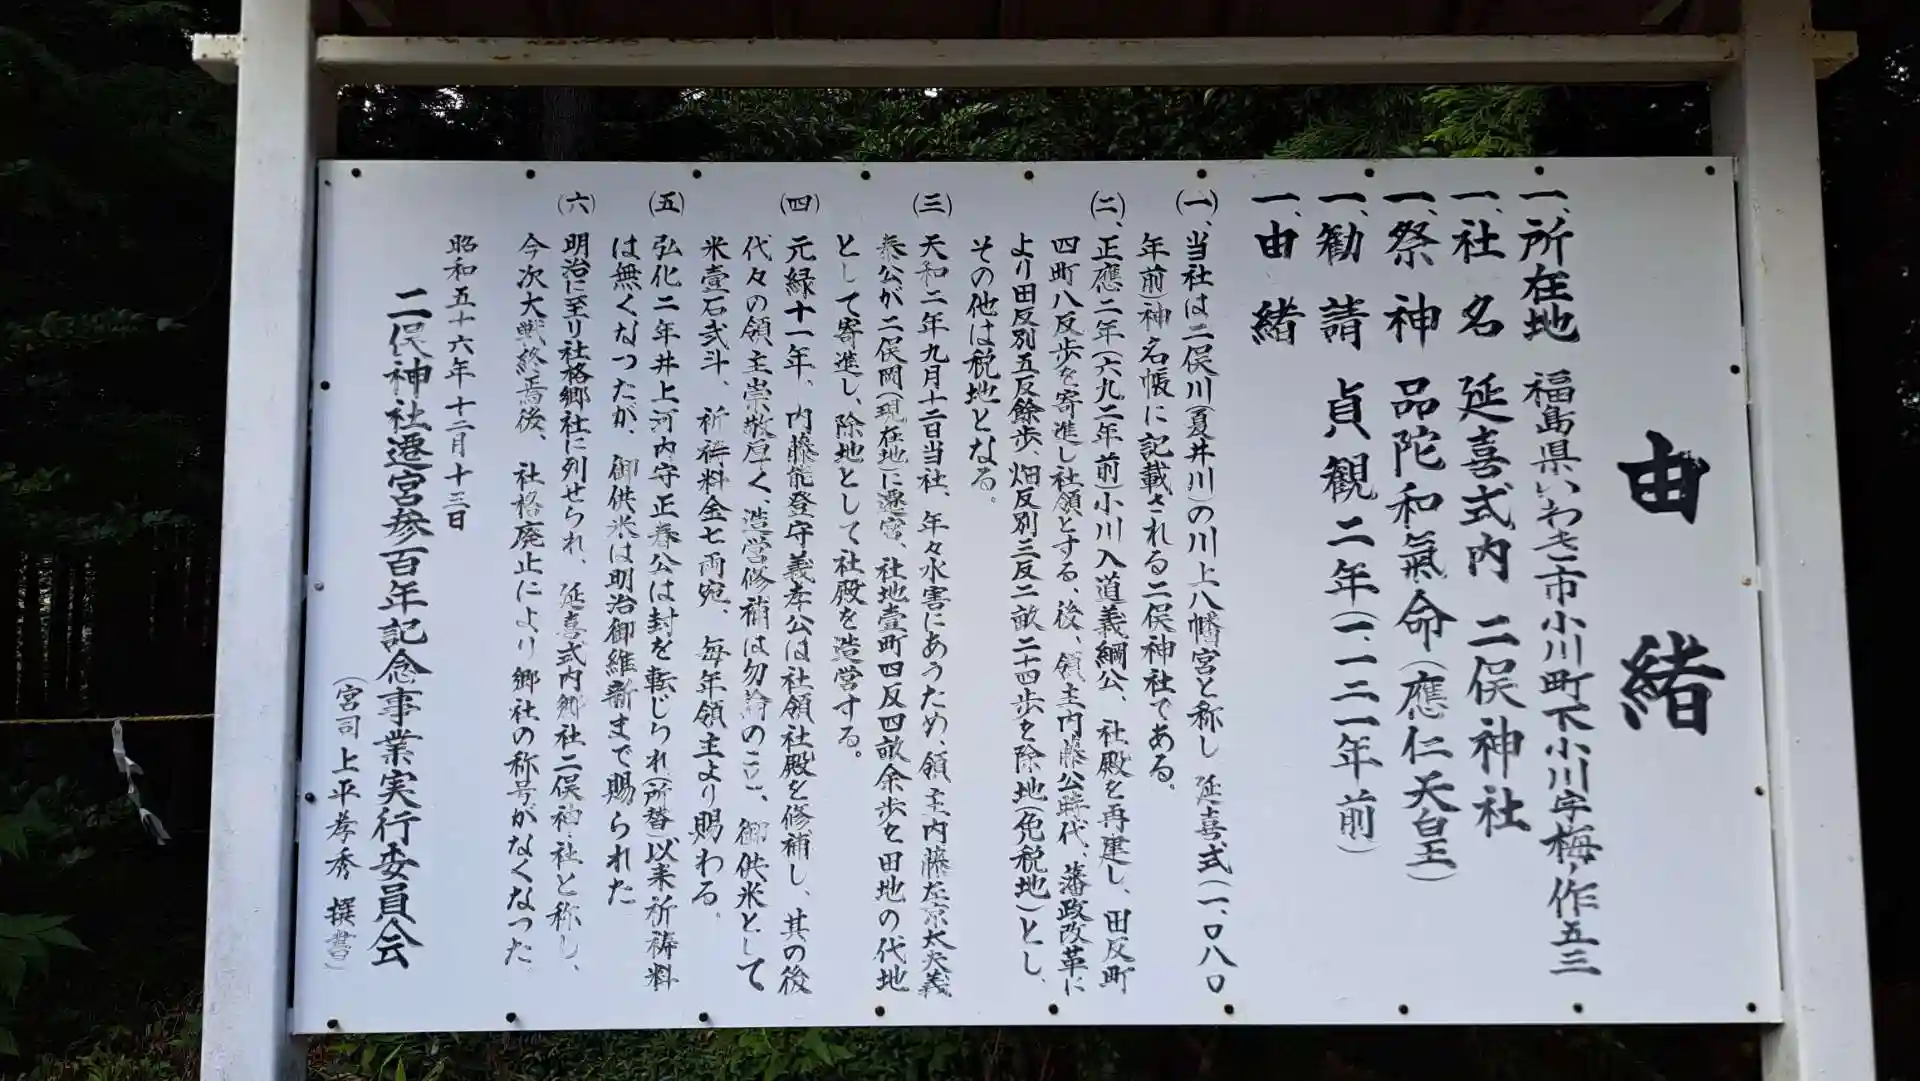 由緒
一、所在地 福島県いわき市小川町下小川字梅ノ作五三
一、社名 延喜式内 二俣神社
一、祭神 品陀和氣命(應仁天皇)
一、勧請 貞観二年(一、一二一年前)
一、由緒
(一)、当社は二俣川(夏井川)の川上八幡宮と称し 延喜式(一、〇八〇
年前)神名帳に記載される二俣神社である。
(二)、正應二年(六九二年前)小川入道義綱公、社殿を再建し、田反町
四町八反歩を寄進し社領とする、後、領主内藤公時代、藩政改革に
より田反別五反餘歩、畑反別三反二畝二十四歩を除地(免税地)とし、
その他は税地となる。
(三) 天和二年九月十二日当社、年々水害にあうため、領主内藤左京太夫義
泰公が二俣岡(現在地)に遷宮、社地壹町四反四畝余歩を田地の代地
として寄進し、除地として社殿を造営する。
(四) 元緑十一年、内藤能登守義孝公は社領社殿を修補し、其の後
代々の領主崇敬厚く、造営修補は勿論のこと、御供米として
米壹石弐斗、祈祷料金七両宛、毎年領主より賜わる。
(五) 弘化二年井上河内守正春公は封を転じられ(所替)以来祈祷料
は無くなつたが、御供米は明治御維新まで賜られた
(六) 明治に至り社格郷社に列せられ、延喜式内郷社二俣神社と称し、
今次大戦終焉後、社格廃止により郷社の称号がなくなつた
昭和五十六年十二月十三日
二俣神社遷宮参百年記念事業実行委員会
(宮司 上平孝秀 撰書)